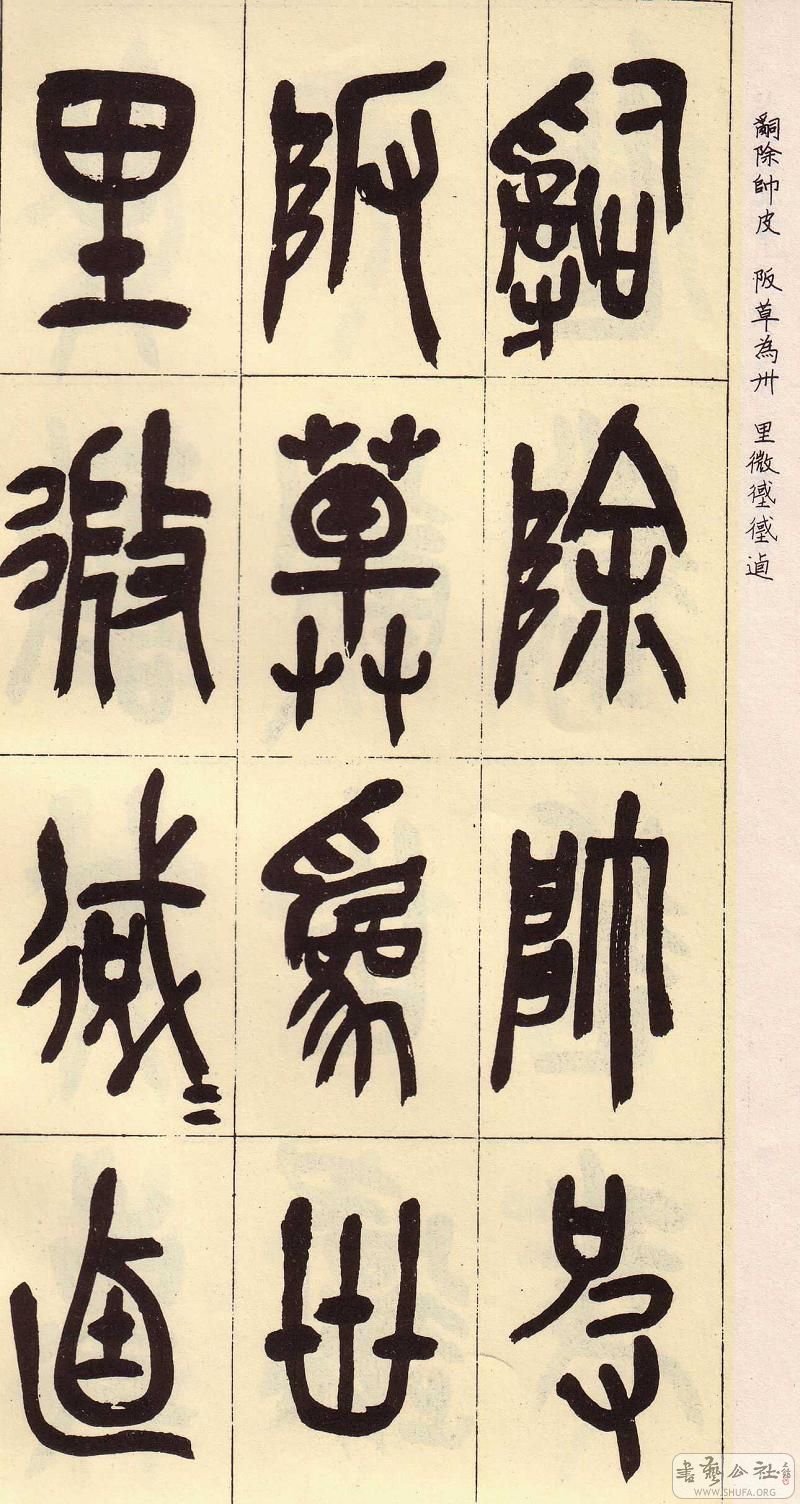 嗣除帥皮
阪草為卅
里微
嗣除帥皮 阪草為卅 里微
書藝公社
WWW.SHUFA.ORG